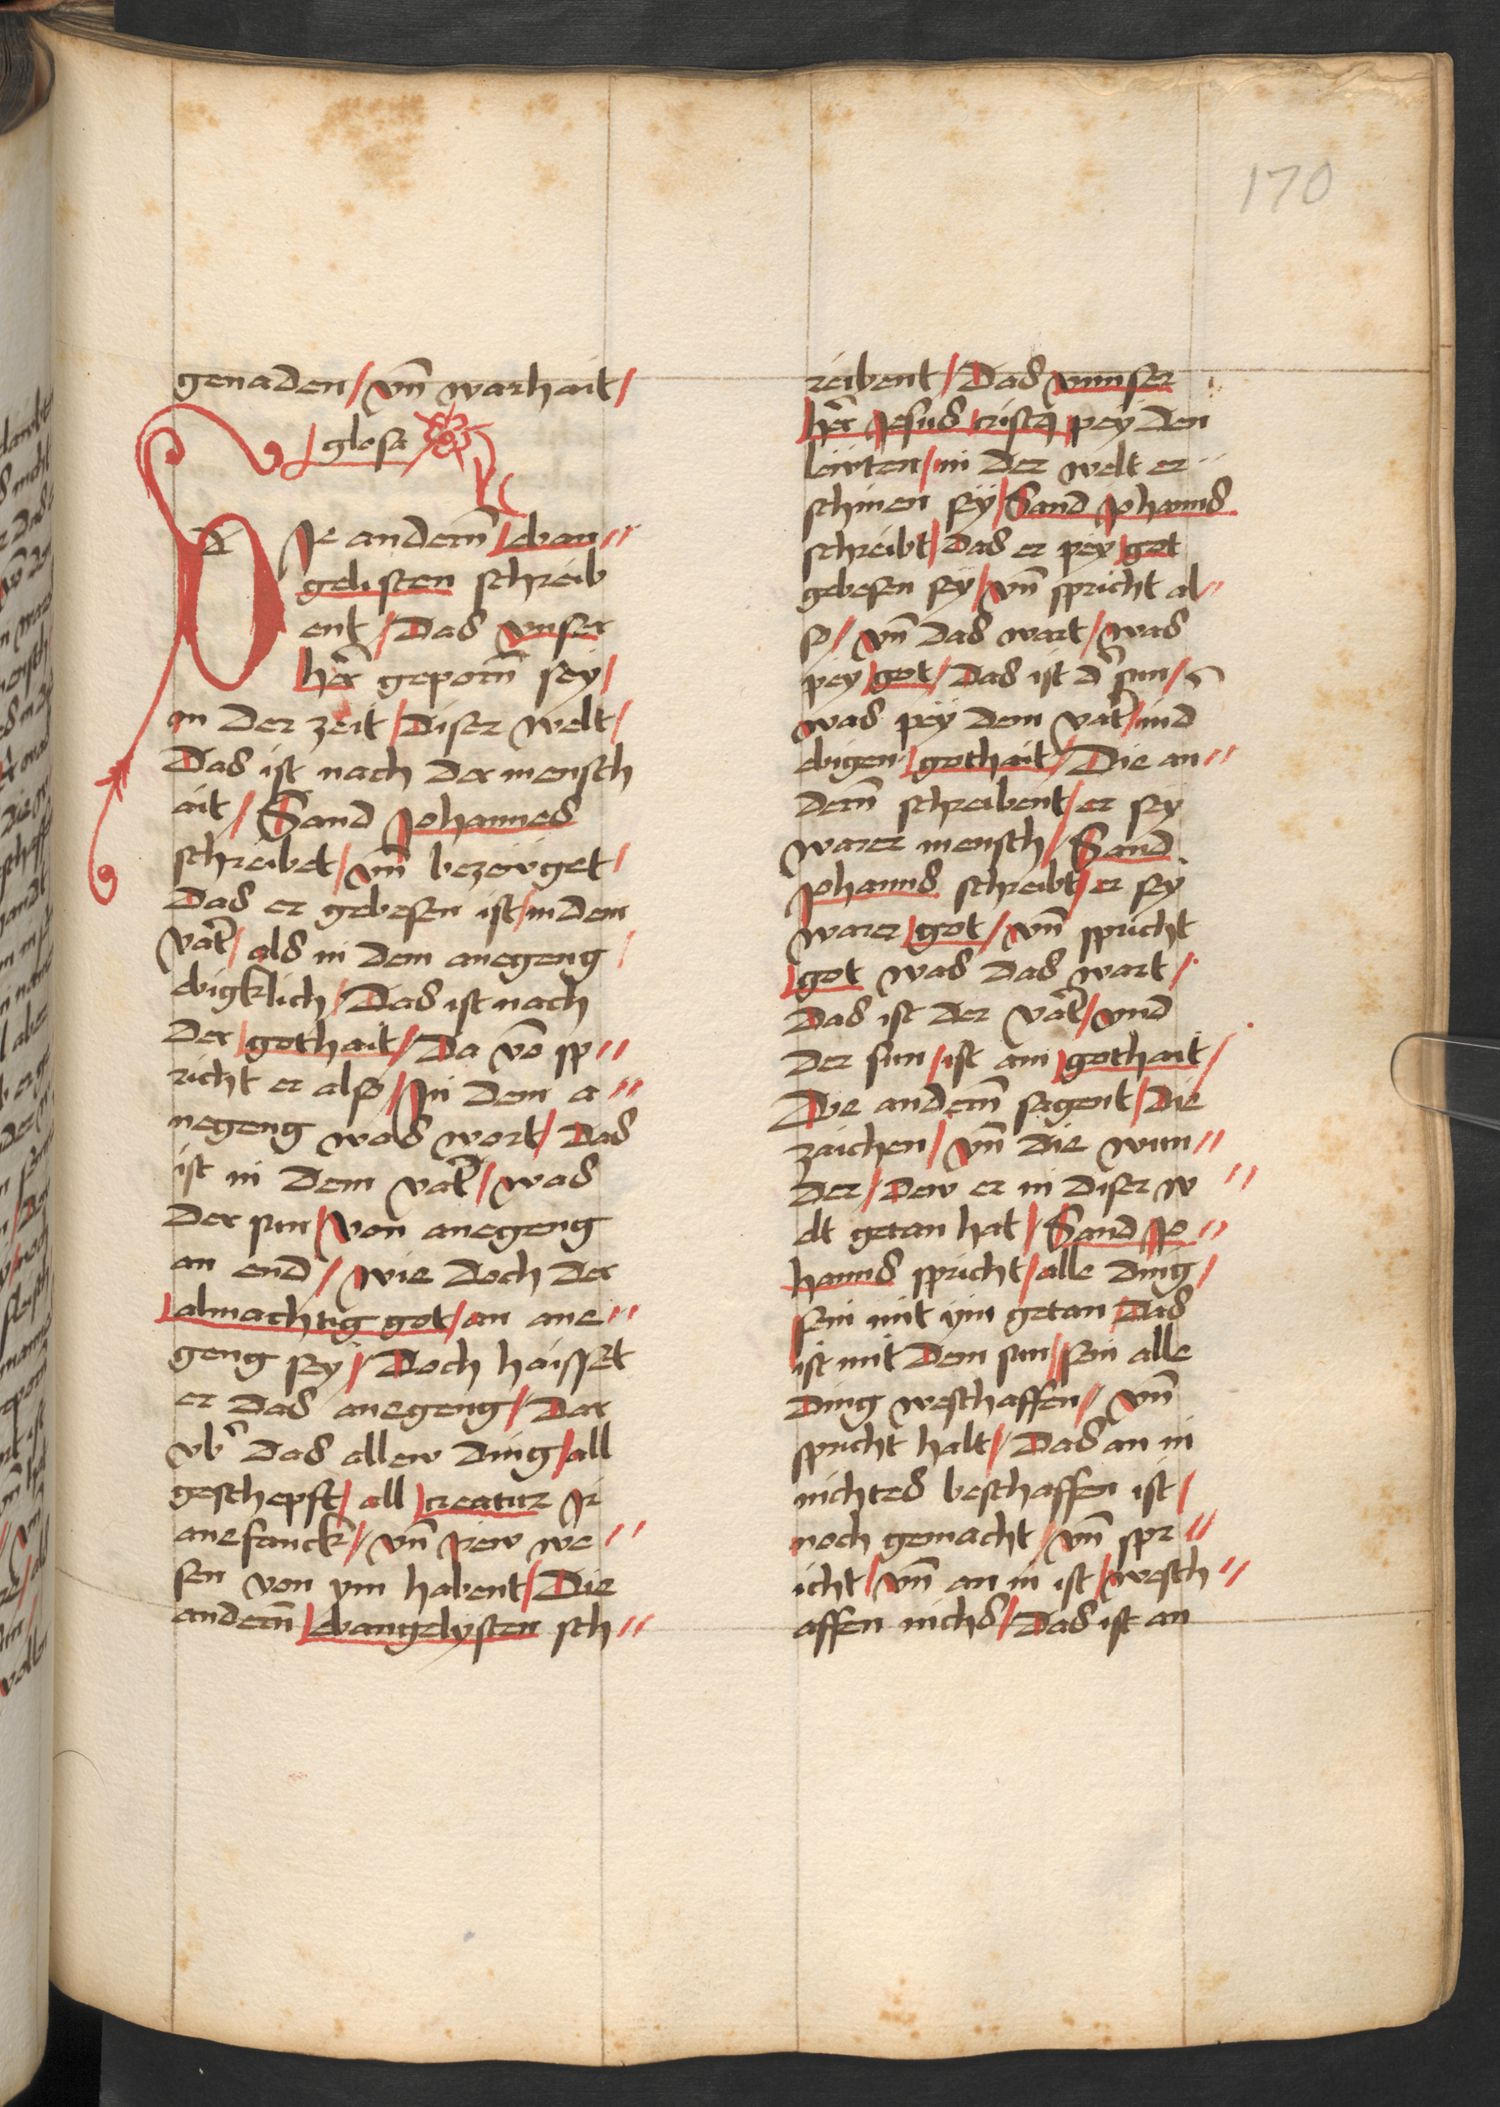 170
genaden / vn̄ warhait /
glosa
DJe andern̄ ewan //
gelisten schreib
ent / Das vnser
her̄ geporn̄ sey /
in der zeit / diser welt /
Das ist nach der mensch
ait / Sand Johannes
schreibet / vn̄ bezewget /
Das er gewesen ist / in dem
vat̄ / als in dem anegeng /
ewigklich / Das ist nach
der gothait / Da vō sp //
richt er also / Jn dem a //
negeng was wort / Das
ist in dem vat̄ / was
der sun / von anegeng
an end / wie doch der
almachtig got / an ane //
geng sey / Doch haisset
er das anegeng / Dar
vb̄ das allew ding / all
geschepft / all creatur jr
anefanck / vn̄ jrew we //
sen von ym habent / Die
andern̄ ewangelysten sch //
reibent / Das vnnser
her̄ Jesus cristꝯ pey den
lewten / in der welt er
schinen sey / Sand Johanns
schreibt / das er pey got
gewesen sey / vn̄ spricht al //
so / vn̄ das wart / was
pey got / Das ist d̄ sun /
was pey dem vat̄ / in d
ewigen gothait / Die an //
dern̄ schreibent / er sey
warer mensch / Sand
Johanns schreibt / er sey
warer got / vn̄ spricht
got was das wart /
Das ist der vat̄ / vnd
der sun / ist ain gothait /
Die andern̄ sagent / die
zaichen / vn̄ die wun //
der / dew er in diser w //
elt getan hat / Sand Jo //
hanns spricht / alle ding /
sein mit ym getan Das
ist mit dem sun / sein alle
ding weschaffen / vn̄
spricht halt / Das an in
nichtes beschaffen ist /
noch gemacht / vn̄ spr //
icht / vn̄ an in ist / wesch //
affen nichs / Das ist an